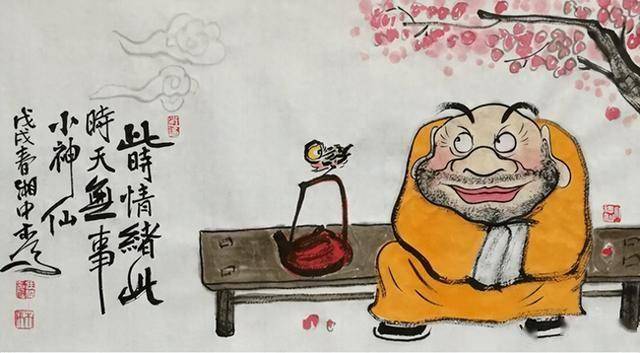 此時情緒此
時天無事
小神仙
戊戌春湘中